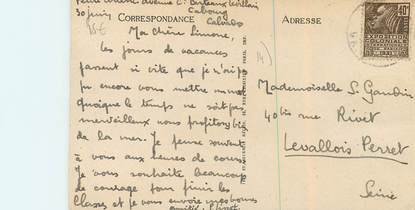 avenue
Cabourg
30 juin Calvados
CORRESPONDANCE
Ma chère Simone,
les jours de vacances
passent si vite que je n'ai pas
pu encore vous mettre un mot
quoique le temps ne soit pas
merveilleux nous profitons bien
de la mer. Je pense souvent
à vous aux heures de cours.
Je vous souhaite beaucoup
de courage pour finir les
classes et je vous envoie mes bonnes
amitiés
ADRESSE
40c
EXPOSITION
COLONIALE
INTERNATIONALE
Mademoiselle S. Gaudin
40 bis rue Rivet
Levallois-Perret
Seine